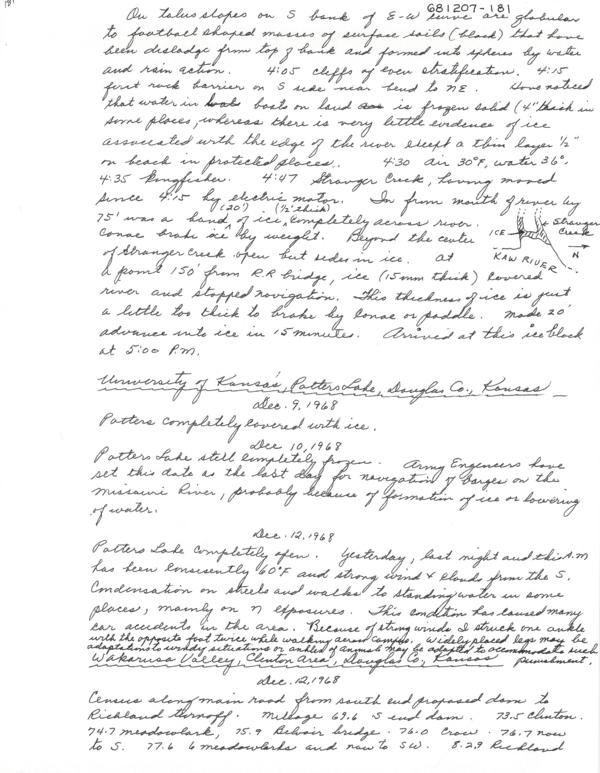 181
681207-181
On talus slopes on S bank of E-W curve are globular
to football shaped masses of surface soils (black) that have
been dislodge from top of bank and formed into spheres by water
and rain action. 4:05 cliffs of even stratification. 4:15
first rock barrier on S side near bend to NE. Have noticed
that water in boats on land is frozen solid (4" thick in
some places, whereas there is very little evidence of ice
associated with the edge of the river except a thin layer ½"
on beach in protected places. 4:30 air 30°F, water 36°.
4:35 Kingfisher. 4:47 Stranger Creek, having moved
since 4:15 by electric motor. In from mouth of river by
75' was a band (20') of ice (½" thick) completely across river.
Canoe brake ice by weight. Beyond the center
of Stranger Creek open but sides in ice. At
a point 150' from R.R. bridge, ice (15mm thick) covered
river and stopped navigation. This thickness of ice is just
a little too thick to brake by canoe or paddle. Made 20'
advance into ice in 15 minutes. Arrived at this ice block
at 5:00 P.M.
Stranger Creek
ICE
KAW RIVER
N
University of Kansas, Potters Lake, Douglas Co., Kansas
Dec. 9, 1968
Potters completely covered with ice.
Dec 10, 1968
Potters Lake still completely frozen. Army Engineers have
set this date as the last day for navigation of barges on the
Missouri River, probably because of formation of ice or lowering
of water.
Dec. 12, 1968
Potters Lake completely open. Yesterday, last night and this A.M
has been consisently 60°F and strong wind & clouds from the S.
Condensation on streets and walks to standing water in some
places, mainly on N exposures. This condition has caused many
car accidents in the area. Because of strong winds I struck one ankle
with the opposite foot twice while walking across campus. Widely placed legs may be
adaptations to windy situations or ankles of animals may be adapted to accommodate such
punishment.
Wakarusa Valley, Clinton Area, Douglas Co., Kansas
Dec. 12, 1968
Census along main road from south end proposed dam to
Richland turnoff. Mileage 69.6 S end dam. 73.5 Clinton.
74.7 meadowlark, 75.9 Belvoir bridge. 76.0 Crow. 76.7 now
to S. 77.6 6 meadowlarks and now to SW. 8-2.9 Richland